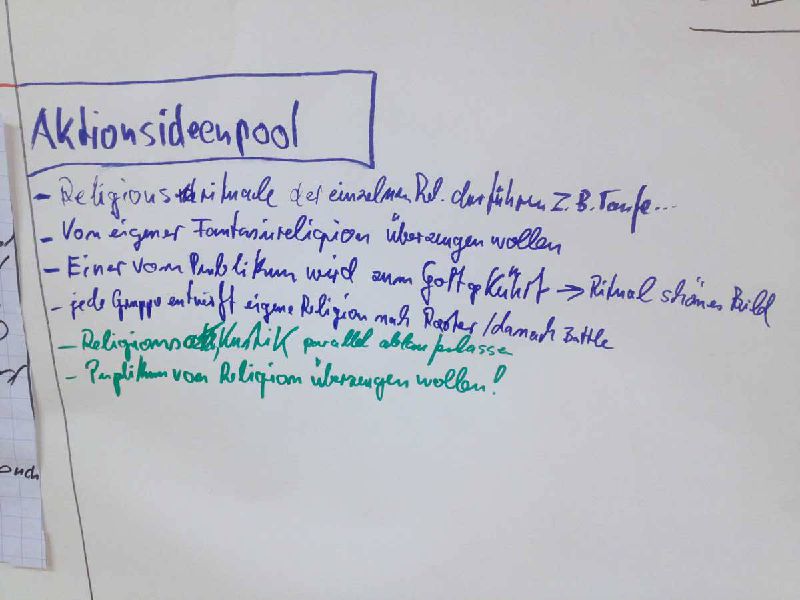 Aktionsideenpool
- Religionsrituale der einzelnen Rel. durführen z.B. Taufe...
- Von eigener Fantasiereligion überzeugen wollen
- Einer vom Publikum wird zum Gott gekührt → Ritual schönes Bild
- jede Gruppe entwirft eigene Religion nach Raster / danach Battle
- Religionsakkustik parallel ablaufen lassen
- Puplikum von Religion überzeugen wollen!
onch